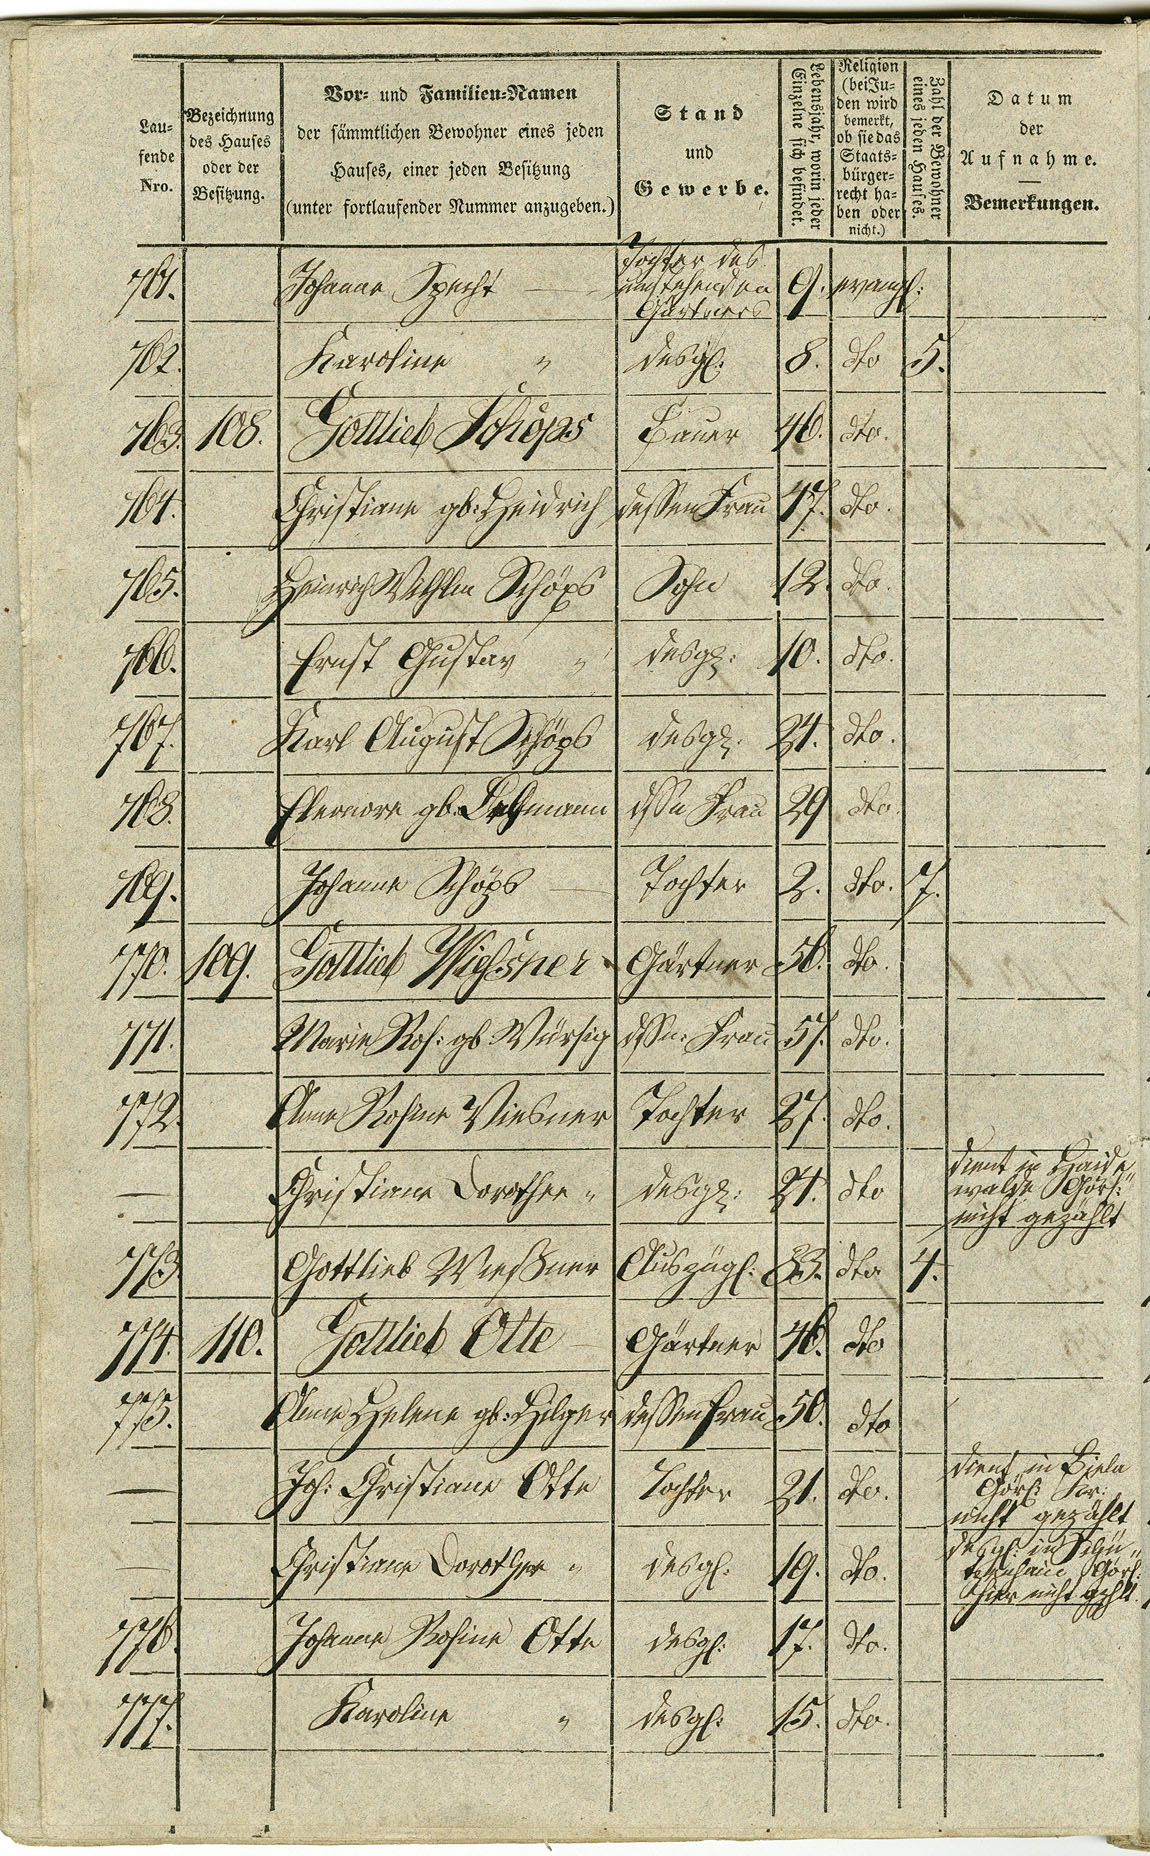 Laufende Nro.
Bezeichnung des Hauses oder der Besitzung.
Vor- und Familien-Namen
der sämmtlichen Bewohner eines jeden
Hauses, einer jeden Besitzung
(unter fortlaufender Nummer anzugeben.)
Stand
und
Gewerbe.
Lebensjahr, worin jeder Einzelne sich befindet.
Religion (bei Juden wird bemerkt, ob sie das Staatsbürgerrecht haben oder nicht.)
Zahl der Bewohner eines jeden Hauses.
Datum
der
Aufnahme.
Bemerkungen.
761. Johanne Specht Tochter des umstehenden Gärtners 9. evangl:
762. Karoline " desgl: 8. dto 5.
763. 108. Gottlieb Schöps Bauer 46. dto.
764. Christiane gb: Heidrich dessen Frau 47. dto.
765. Heinrich Wilhlm Schöps Sohn 12. dto.
766. Ernst Gustav " desgl: 10. dto.
767. Karl August Schöps desgl: 24. dto.
768. Eleonore gb. Lehmann dssn Frau 29 dto.
769. Johanne Schöps Tochter 2. dto. 7.
770. 109. Gottlieb Gärtner 56. dto.
771. Marie Ros: gb: Würsig dssn: Frau 57. dto.
772. Anne Rosine Wiesner Tochter 27. dto.
— Christiane Dorothee " desgl: 24. dto dient in Haide
walde Görl:
nicht gezählt
773. Gottlieb Wießner Auszügl: 83. dto 4.
774. 110. Gottlieb Otte Gärtner 46. dto
775. Anne Helene gb: Hilger dessen Frau 50. dto
— Joh: Christiane Otte Tochter 21. dto. dient in Biela
Görl: Kr:
nicht gezählt
— Christiane Dorothee " desgl: 19. dto. desgl: in
Görl:
hier nicht gzhlt.
776. Johanne Rosine Otte desgl: 17. dto.
777. Karoline " desgl: 15. dto.